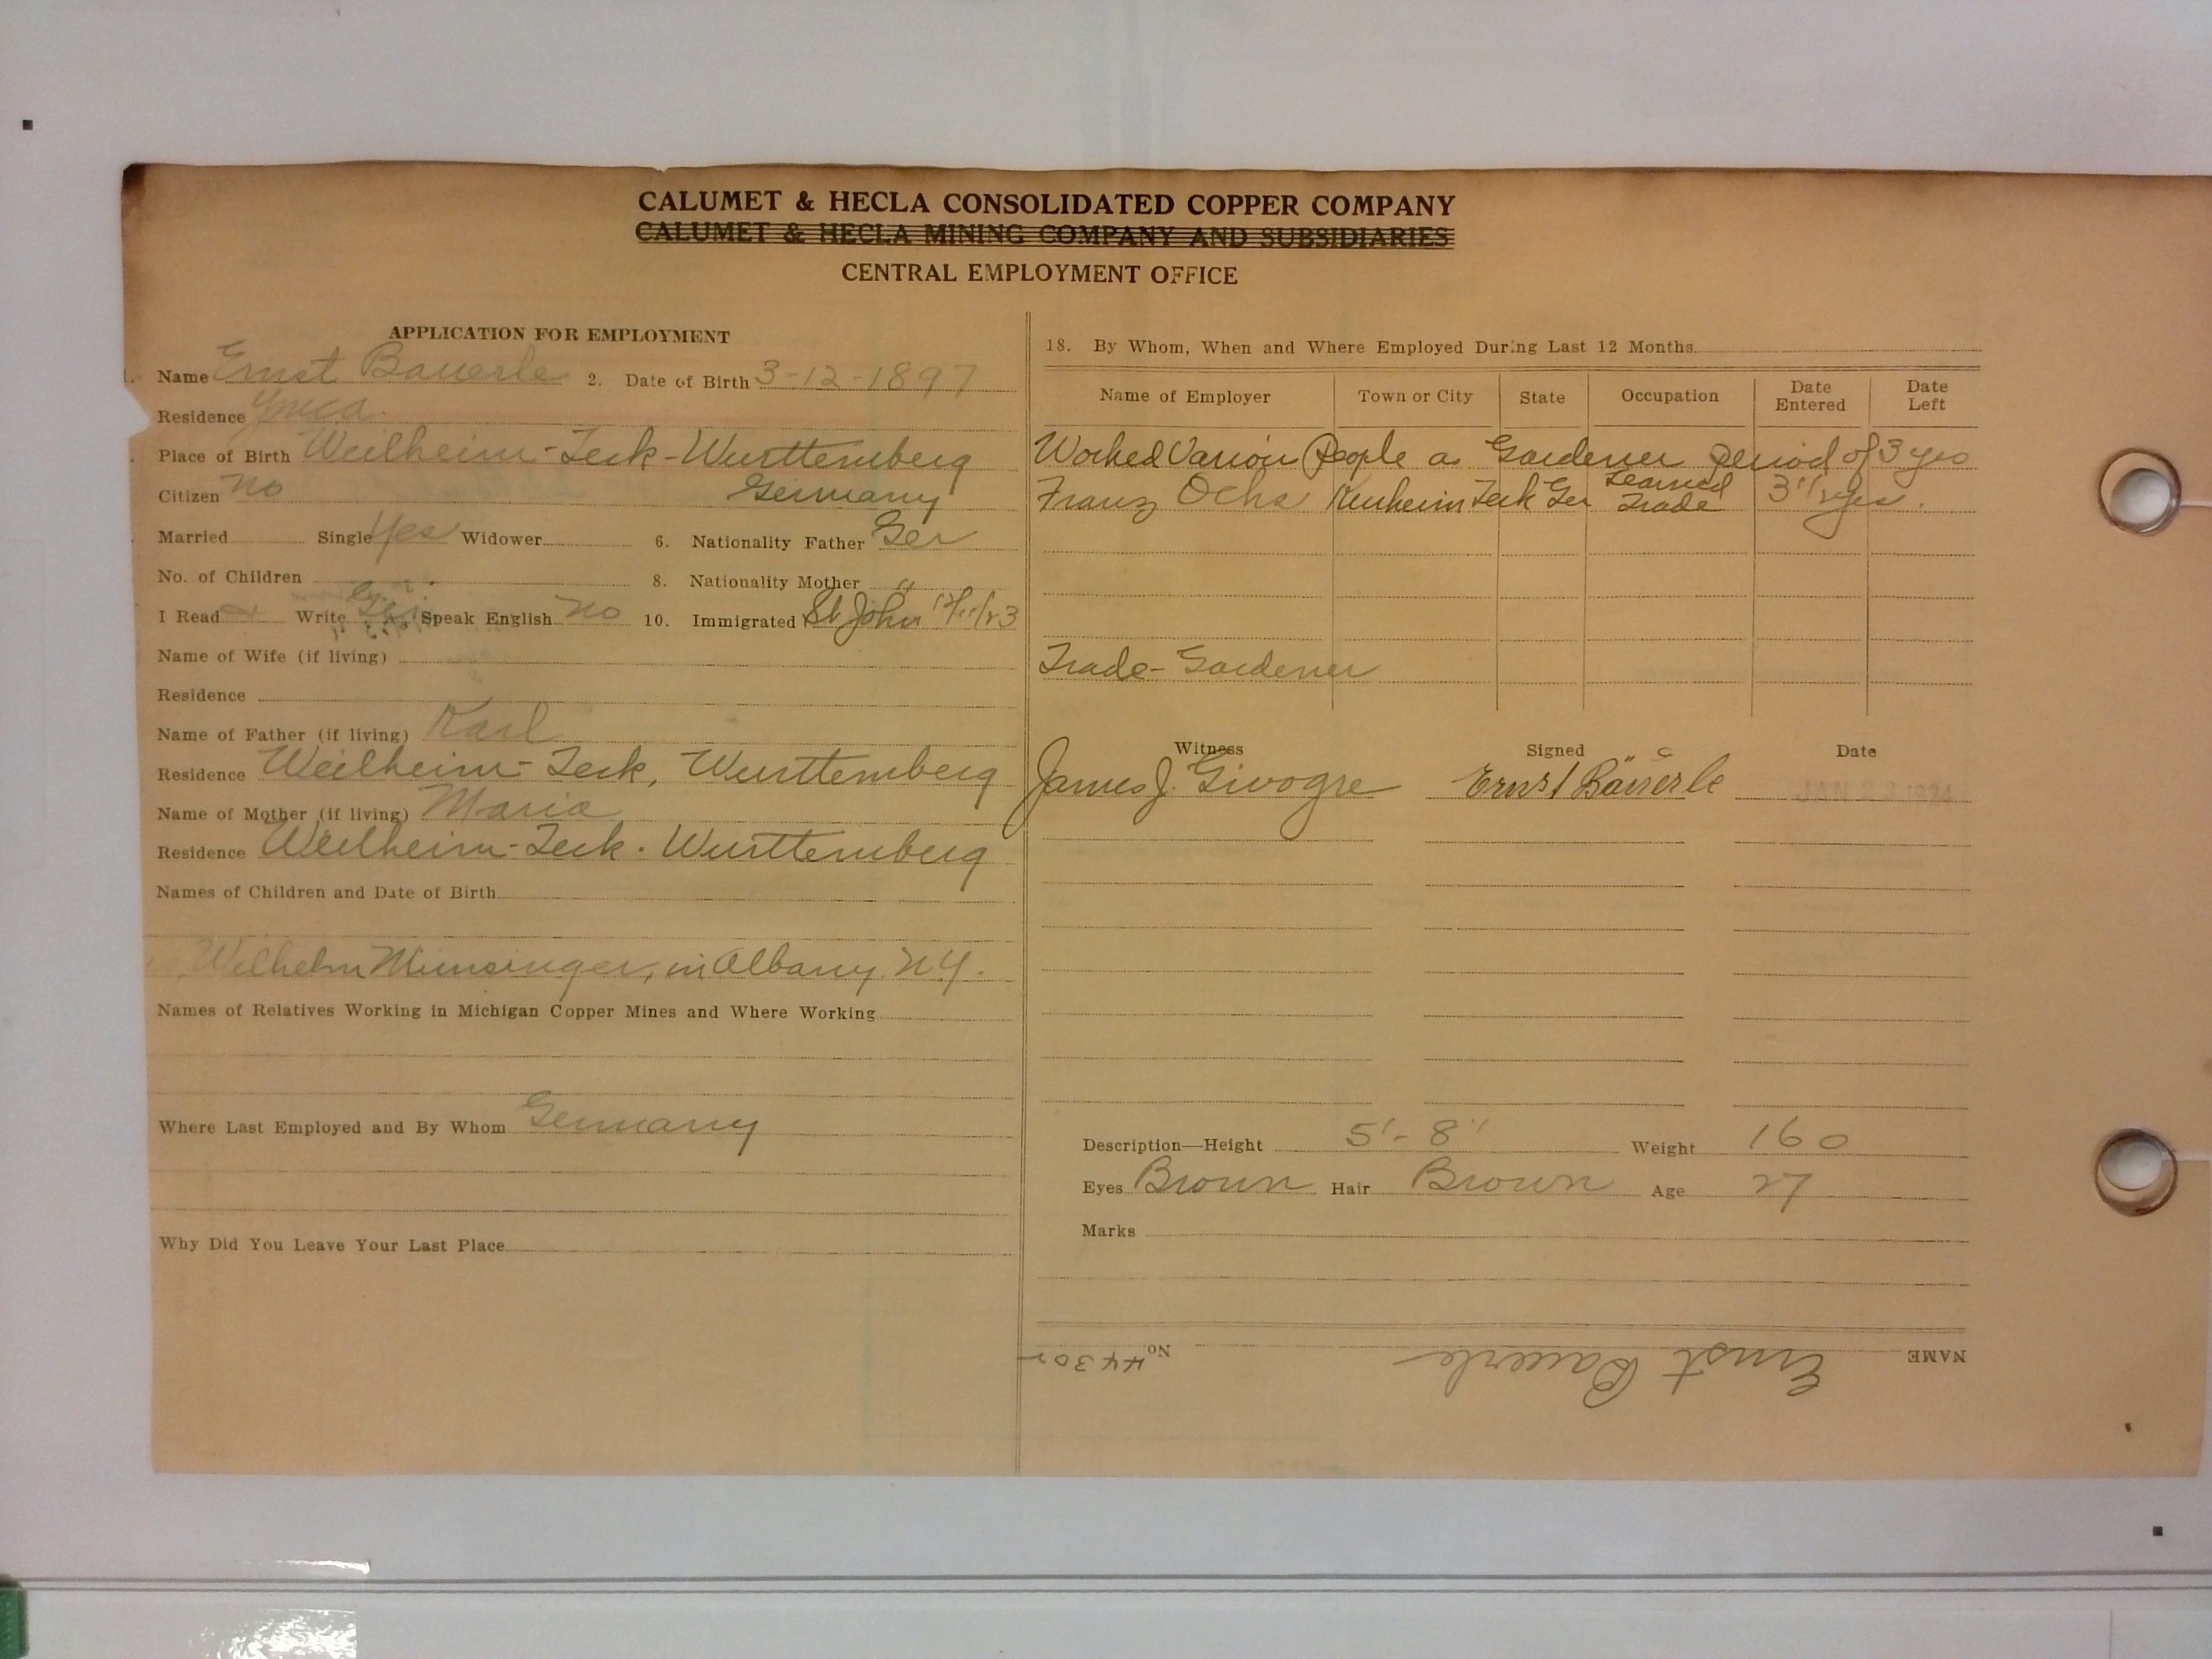 CALUMET & HECLA CONSOLIDATED COPPER COMPANY
CALUMET & HECLA MINING COMPANY AND SUBSIDIARIES
CENTRAL EMPLOYMENT OFFICE
APPLICATION FOR EMPLOYMENT
Name Ernst Bauerle 2. Date of Birth 3-12-1897
Residence Ymca
Place of Birth Weilheim-Teck-Wurttemberg
Citizen no Germany
Married Single Yes Widower 6. Nationality Father Ger
No. of Children 8. Nationality Mother "
I Read & Write Speak English no 10. Immigrated St John 12/11/23
Name of Wife (if living)
Residence
Name of Father (if living) Karl
Residence Weilheim-Teck, Wurttemberg
Name of Mother (if living) Maria
Residence Weilheim-Teck. Wurttemberg
Names of Children and Date of Birth
Wilhelm Munsinger, in Albany N.Y.
Names of Relatives Working in Michigan Copper Mines and Where Working
Where Last Employed and By Whom Germany
Why Did You Leave Your Last Place
18. By Whom, When and Where Employed During Last 12 Months
Name of Employer Town or City State Occupation Date Entered Date Left
Worked Variou People as Gardener period of 3 yrs
Franz Ochs Teck Ger Learned Trade 3 1/2 yrs.
Trade-Gardener
Witness Signed Date
James J. Givogre Ernst Bäuerle JAN 23 1924
Description—Height 5'-8" Weight 160
Eyes Brown Hair Brown Age 27
Marks
NAME Ernst Bauerle No. 44302